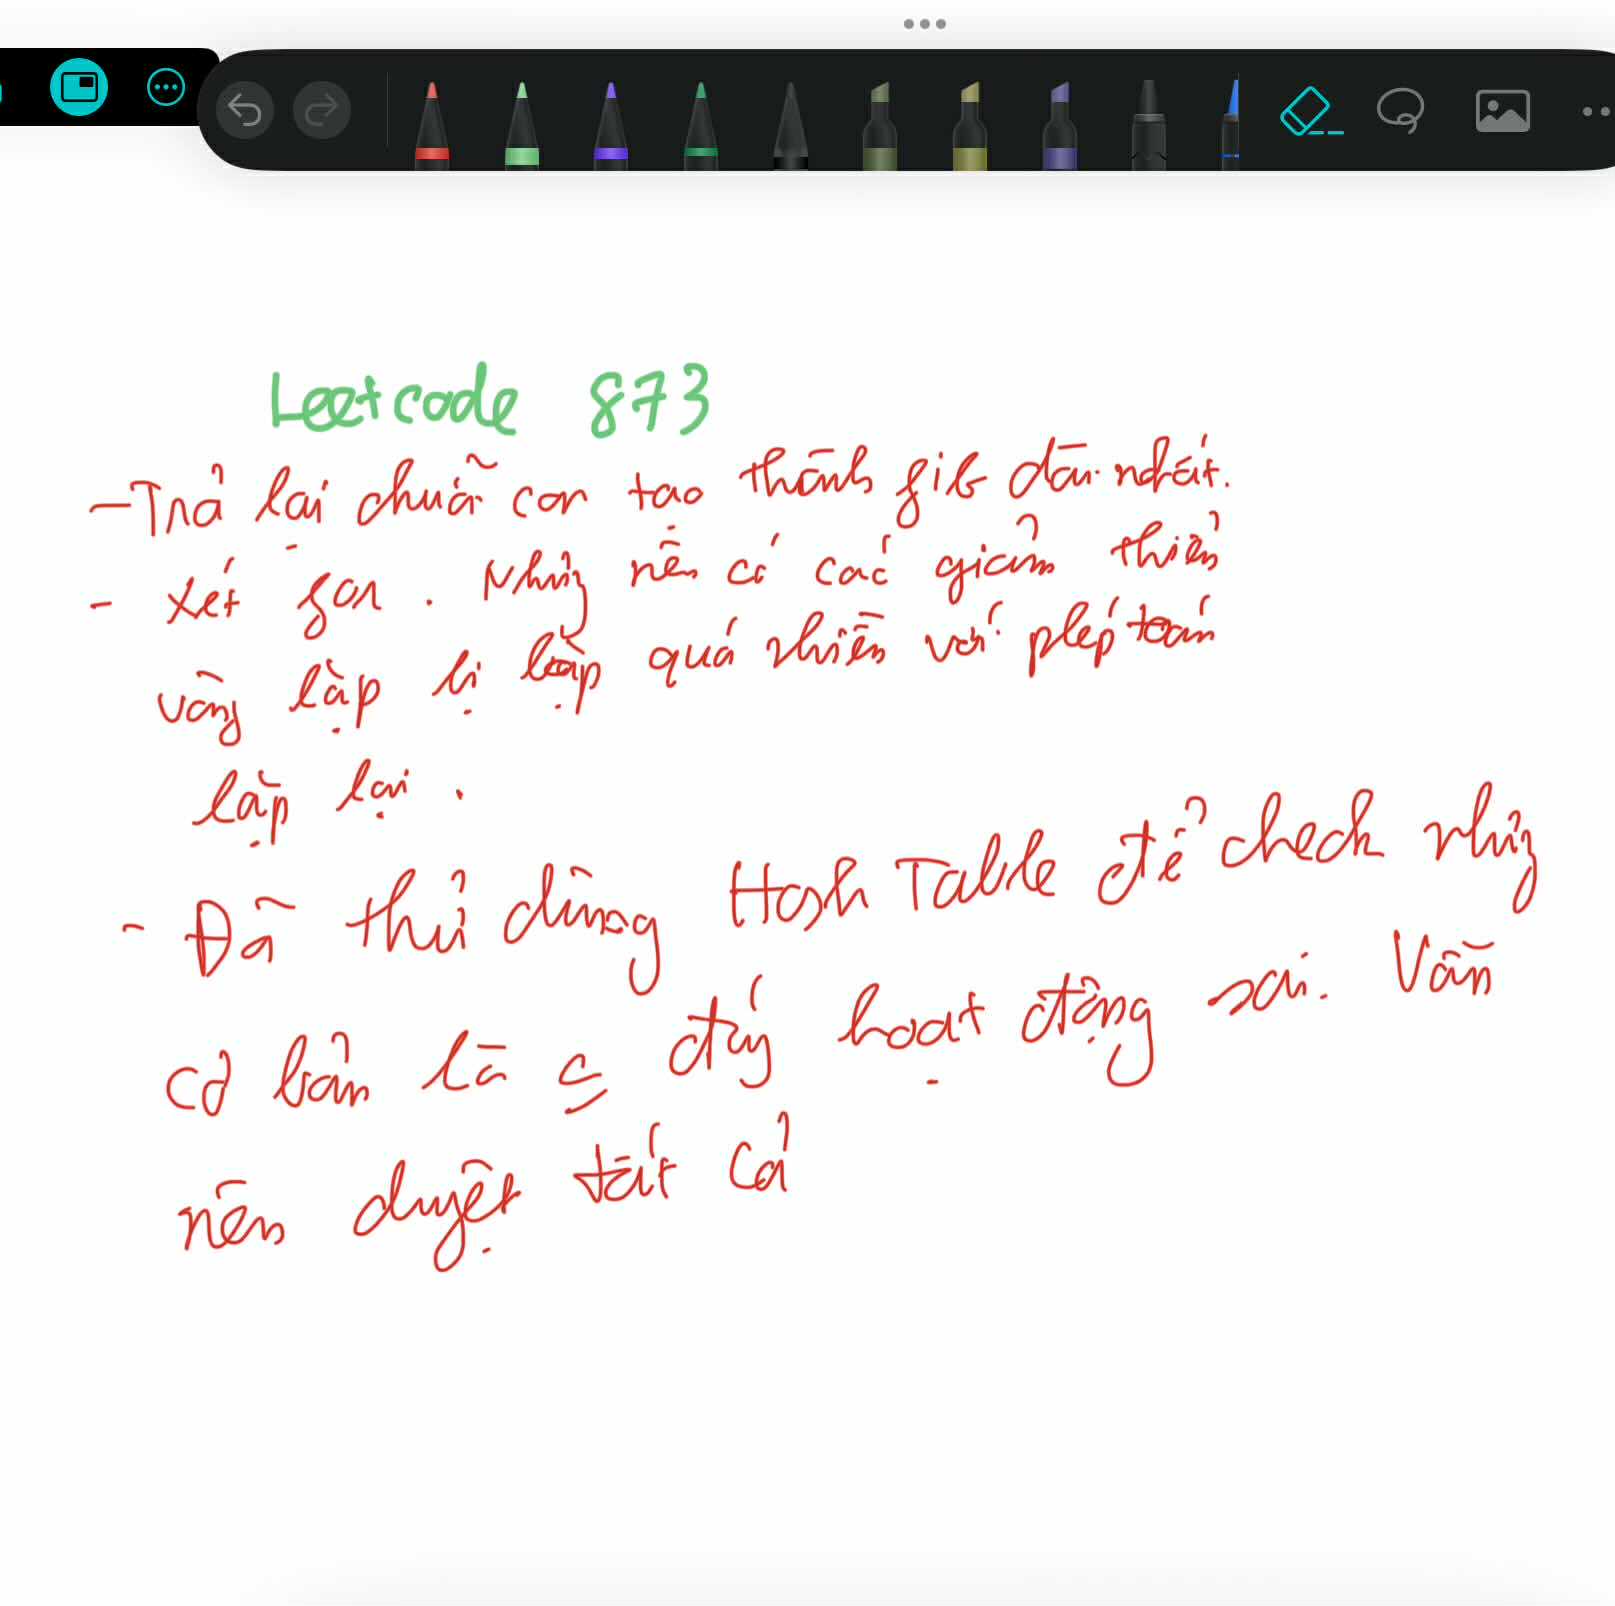 Leetcode 873
- Trả lại chuỗi con tạo thành fib dài nhất.
- Xét gọn. Nhưng nên có các giảm thiểu
vòng lặp bị lặp quá nhiều với phép toán
lặp lại.
- Đã thử dùng Hash Table để check nhưng
cơ bản là đấy hoạt động sai. Vẫn
nên duyệt tất cả